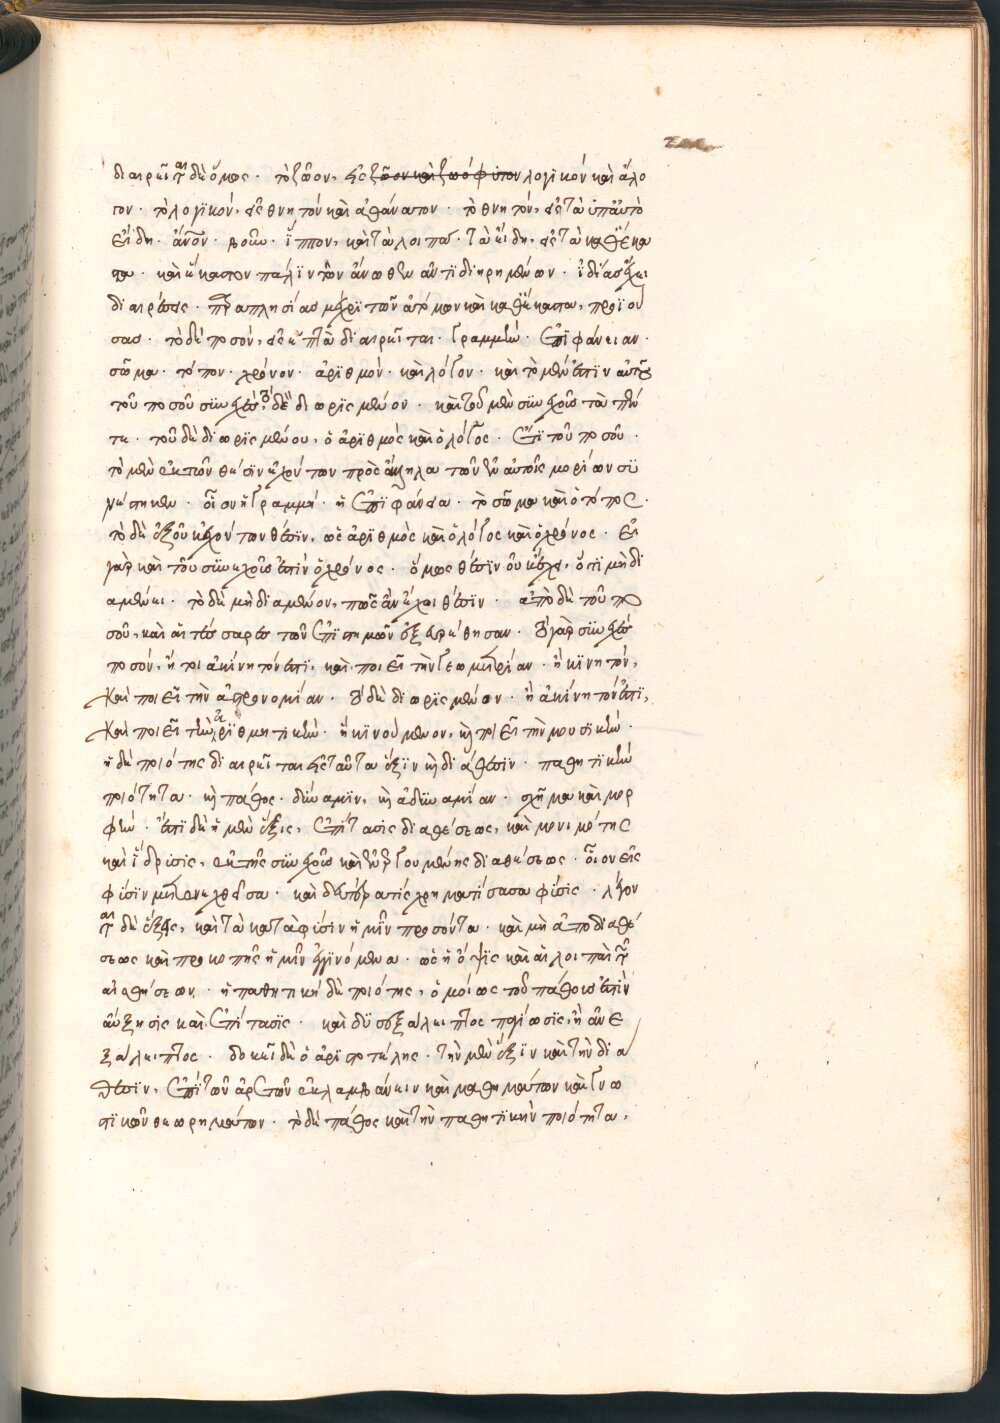 διαιρεῖται δὲ ὅμως · τὸ ζῶον, εἰς ζῶον καὶ ζωόφυτον λογικόν καὶ ἄλο
γον · τὸ λογικόν, εἰς θνητόν καὶ ἀθάνατον · τὸ θνητόν, εἰς τὰ ὑπ' αὐτὸ
εἴδη · ἄνον · βοῦν · ἵππον, καὶ τὰ λοιπά · τὰ εἴδη, εἰς τὰ καθ' ἕκα
στα · καὶ ἕκαστον πάλιν τῶν ἄνωθεν ἀντιδιηρημένων · ἰδίας ἔχει
διαιρέσεις · παραπλησίας μέχρι τῶν ἀτόμων καὶ καθέκαστα, προϊού
σας · τὸ δὲ ποσόν, εἰς ἑπτὰ διαιρεῖται · γραμμήν · ἐπιφάνειαν ·
σῶμα · τόπον · χρόνον · ἀριθμόν · καὶ λόγον · καὶ τὸ μέν ἐστιν αὐτοῦ
τοῦ ποσοῦ συνεχές, τὸ δὲ διωρισμένον · καὶ τοῦ μὲν συνεχοῦς τὰ πέν
τε · τοῦ δὲ διωρισμένου, ὁ ἀριθμὸς καὶ ὁ λόγος · ἔτι τοῦ ποσοῦ ·
τὸ μὲν ἐκ τῶν θέσιν ἐχόντων πρὸς ἄλληλα τῶν ἐν αὐτοῖς μορίων συ
νέστηκεν · οἷον ἡ γραμμή · ἡ ἐπιφάνεια · τὸ σῶμα καὶ ὁ τόπος ·
τὸ δὲ ἐξ οὐκ ἐχόντων θέσιν, ὡς ἀριθμὸς καὶ ὁ λόγος καὶ ὁ χρόνος · εἰ
γὰρ καὶ τοῦ συνεχοῦς ἐστιν ὁ χρόνος · ὅμως θέσιν οὐκ ἔχει, ὅτι μὴ δι
αμένει · τὸ δὲ μὴ διαμένον, πῶς ἂν ἔχοι θέσιν · ἀπὸ δὲ τοῦ πο
σοῦ, καὶ αἱ τέσσαρες τῶν ἐπιστημῶν ἐξευρέθησαν · τὸ γὰρ συνεχές
ποσόν, ἤτοι ἀκίνητόν ἐστι, καὶ ποιεῖ τὴν γεωμετρίαν · ἢ κινητόν,
καὶ ποιεῖ τὴν ἀστρονομίαν · τὸ δὲ διωρισμένον · ἢ ἀκίνητόν ἐστι,
καὶ ποιεῖ τὴν ἀριθμητικήν · ἢ κινούμενον, καὶ ποιεῖ τὴν μουσικήν ·
ἡ δὲ ποιότης διαιρεῖται εἰς ταῦτα ἕξιν καὶ διάθεσιν · παθητικὴν
ποιότητα · καὶ πάθος · δύναμιν, καὶ ἀδυναμίαν · σχῆμα καὶ μορ
φήν · ἔστι δὲ ἡ μὲν ἕξις, ἐπίτασις διαθέσεως, καὶ μονιμότης
καὶ ἵδρισις, ἐκ τῆς συνεχοῦς καὶ διαθέσεως · οἷον εἰς
φύσιν μετενεχθεῖσα · καὶ δευτέρα τίς χρηματίσασα φύσις · λέγον
ται δὲ ἕξεις, καὶ τὰ κατὰ φύσιν ἡμῖν προσόντα · καὶ μὴ ἀπὸ διαθέ
σεως καὶ προκοπῆς ἡμῖν ἐγγινόμενα · ὡς ἡ ὄψις καὶ αἱ λοιπαὶ τῶν
αἰσθήσεων · ἡ παθητικὴ δὲ ποιότης, ὁμοίως τοῦ πάθους ἐστὶν
αὔξησις καὶ ἐπίτασις · καὶ δυσεξάλειπτος ποίωσις, ἢ ἀνε
ξάλειπτος · δοκεῖ δὲ ὁ ἀριστοτέλης · τὴν μὲν ἕξιν καὶ τὴν διά
θεσιν, ἐπὶ τῶν ἀρετῶν ἐκλαμβάνειν καὶ μαθημάτων καὶ γνω
στικῶν θεωρημάτων · τὸ δὲ πάθος καὶ τὴν παθητικὴν ποιότητα,